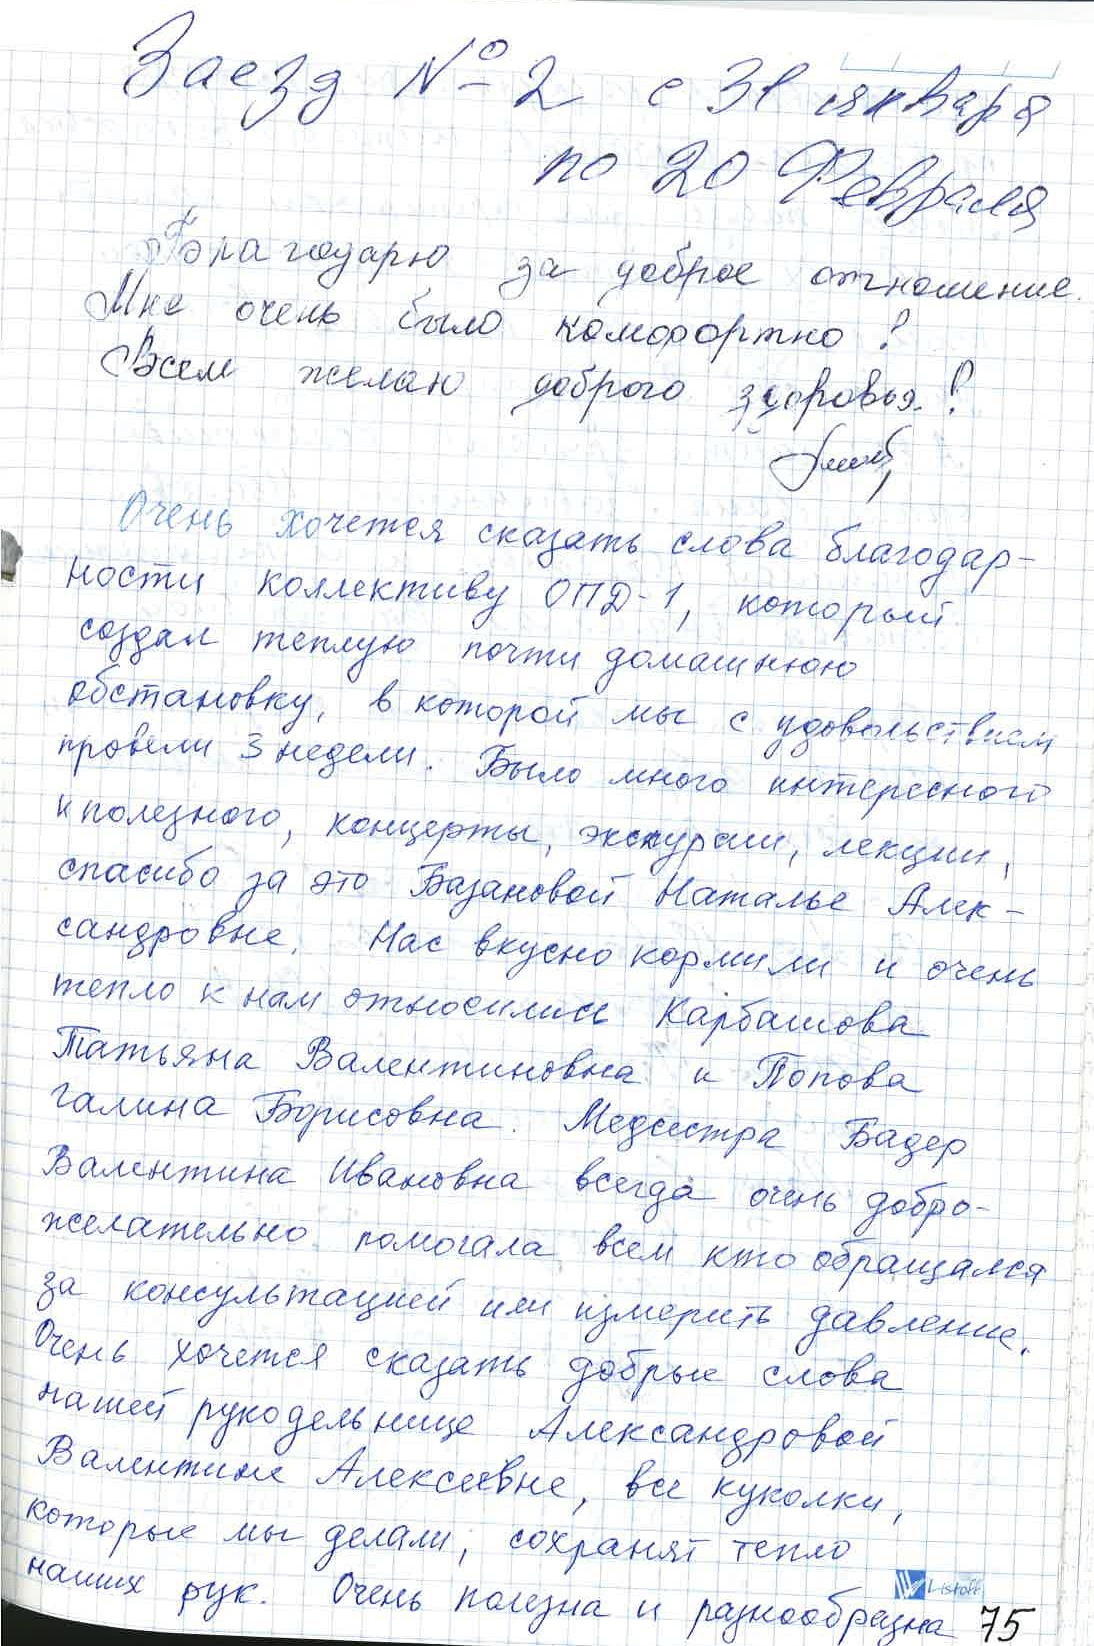 Заезд № 2 с 31 января
по 20 Февраля
Благодарю за доброе отношение.
Мне очень было комфортно!
Всем желаю доброго здоровья!
Очень хочется сказать слова благодар-
ности коллективу ОПД-1, который
создал теплую почти домашнюю
обстановку, в которой мы с удовольствием
провели 3 недели. Было много интересного
и полезного, концерты, экскурсии, лекции,
спасибо за это Базановой Наталье Алек-
сандровне. Нас вкусно кормили и очень
тепло к нам относились Карбашова
Татьяна Валентиновна и Попова
Галина Борисовна. Медсестра Бадер
Валентина Ивановна всегда очень добро-
желательно помогала всем кто обращался
за консультацией или измерить давление.
Очень хочется сказать добрые слова
нашей рукодельнице Александровой
Валентине Алексеевне, все куколки,
которые мы делали, сохранят тепло
наших рук. Очень полезна и разнообразна
Listoff
75